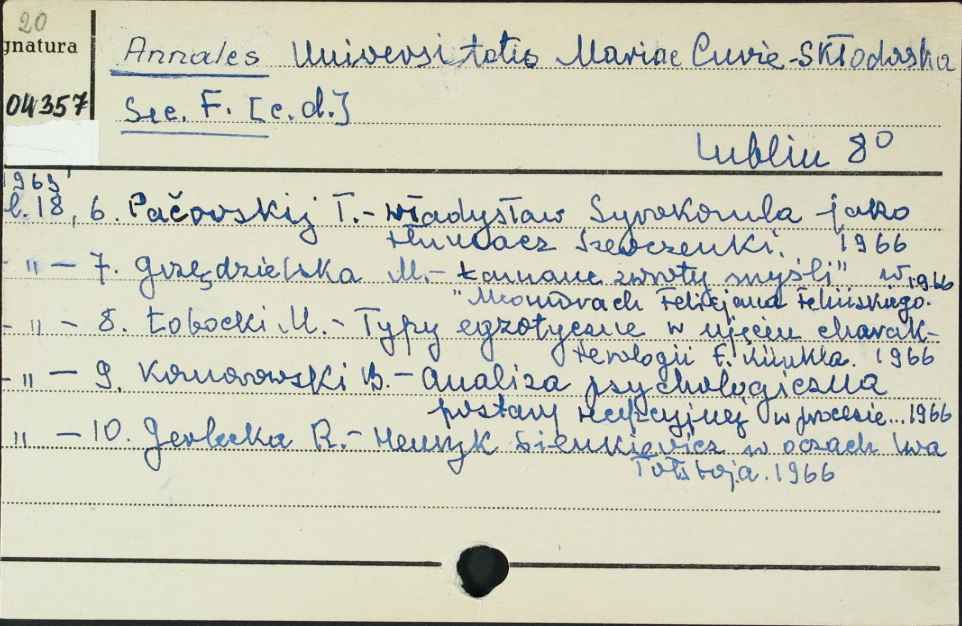 20
gnatura
Annales Universitatis Mariae Curie-Skłodowska
04357
Sec. F. [c.d.]
Lublin 8°
1963
t.18, 6. Pačovskij T.- Władysław Syrokomla jako
tłumacz Szewczenki. 1966
- " - 7. Grzędzielska M.- Łamane zwroty myśli" w 1966
"Memorach Felicjana Felińskiego.
- " - 8. Łobocki M.- Typy egzotyczne w ujęciu charak-
terologii F. Künkla. 1966
- " - 9. Komorowski B.- Analiza psychologiczna
postawy recepcyjnej w procesie... 1966
" - 10. Gerlecka R.- Henryk Sienkiewicz w oczach Lwa
Tołstoja. 1966